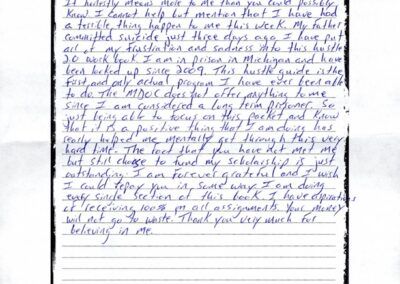 It honestly means more to me than you could possibly
know. I cannot help but mention that I have had
a terrible thing happen to me this week. My father
committed suicide just three days ago. I have put
all of my frustration and sadness into this hustle
2.0 work book. I am in prison in Michigan and have
been locked up since 2009. This hustle guide is the
first and only actual program I have ever been able
to do. The MDOC does not offer anything to me
since I am considered a long term prisoner. So
just being able to focus on this packet and know
that it is a positive thing that I am doing has
really helped me mentally get through this very
hard time. The love that you have not met me
but still choose to fund my scholarship is just
outstanding. I am forever grateful and I wish
I could repay you in some way. I am doing
every single section of this book. I have aspirations
of receiving 100% on all assignments. Your money
will not go to waste. Thank you very much for
believing in me.